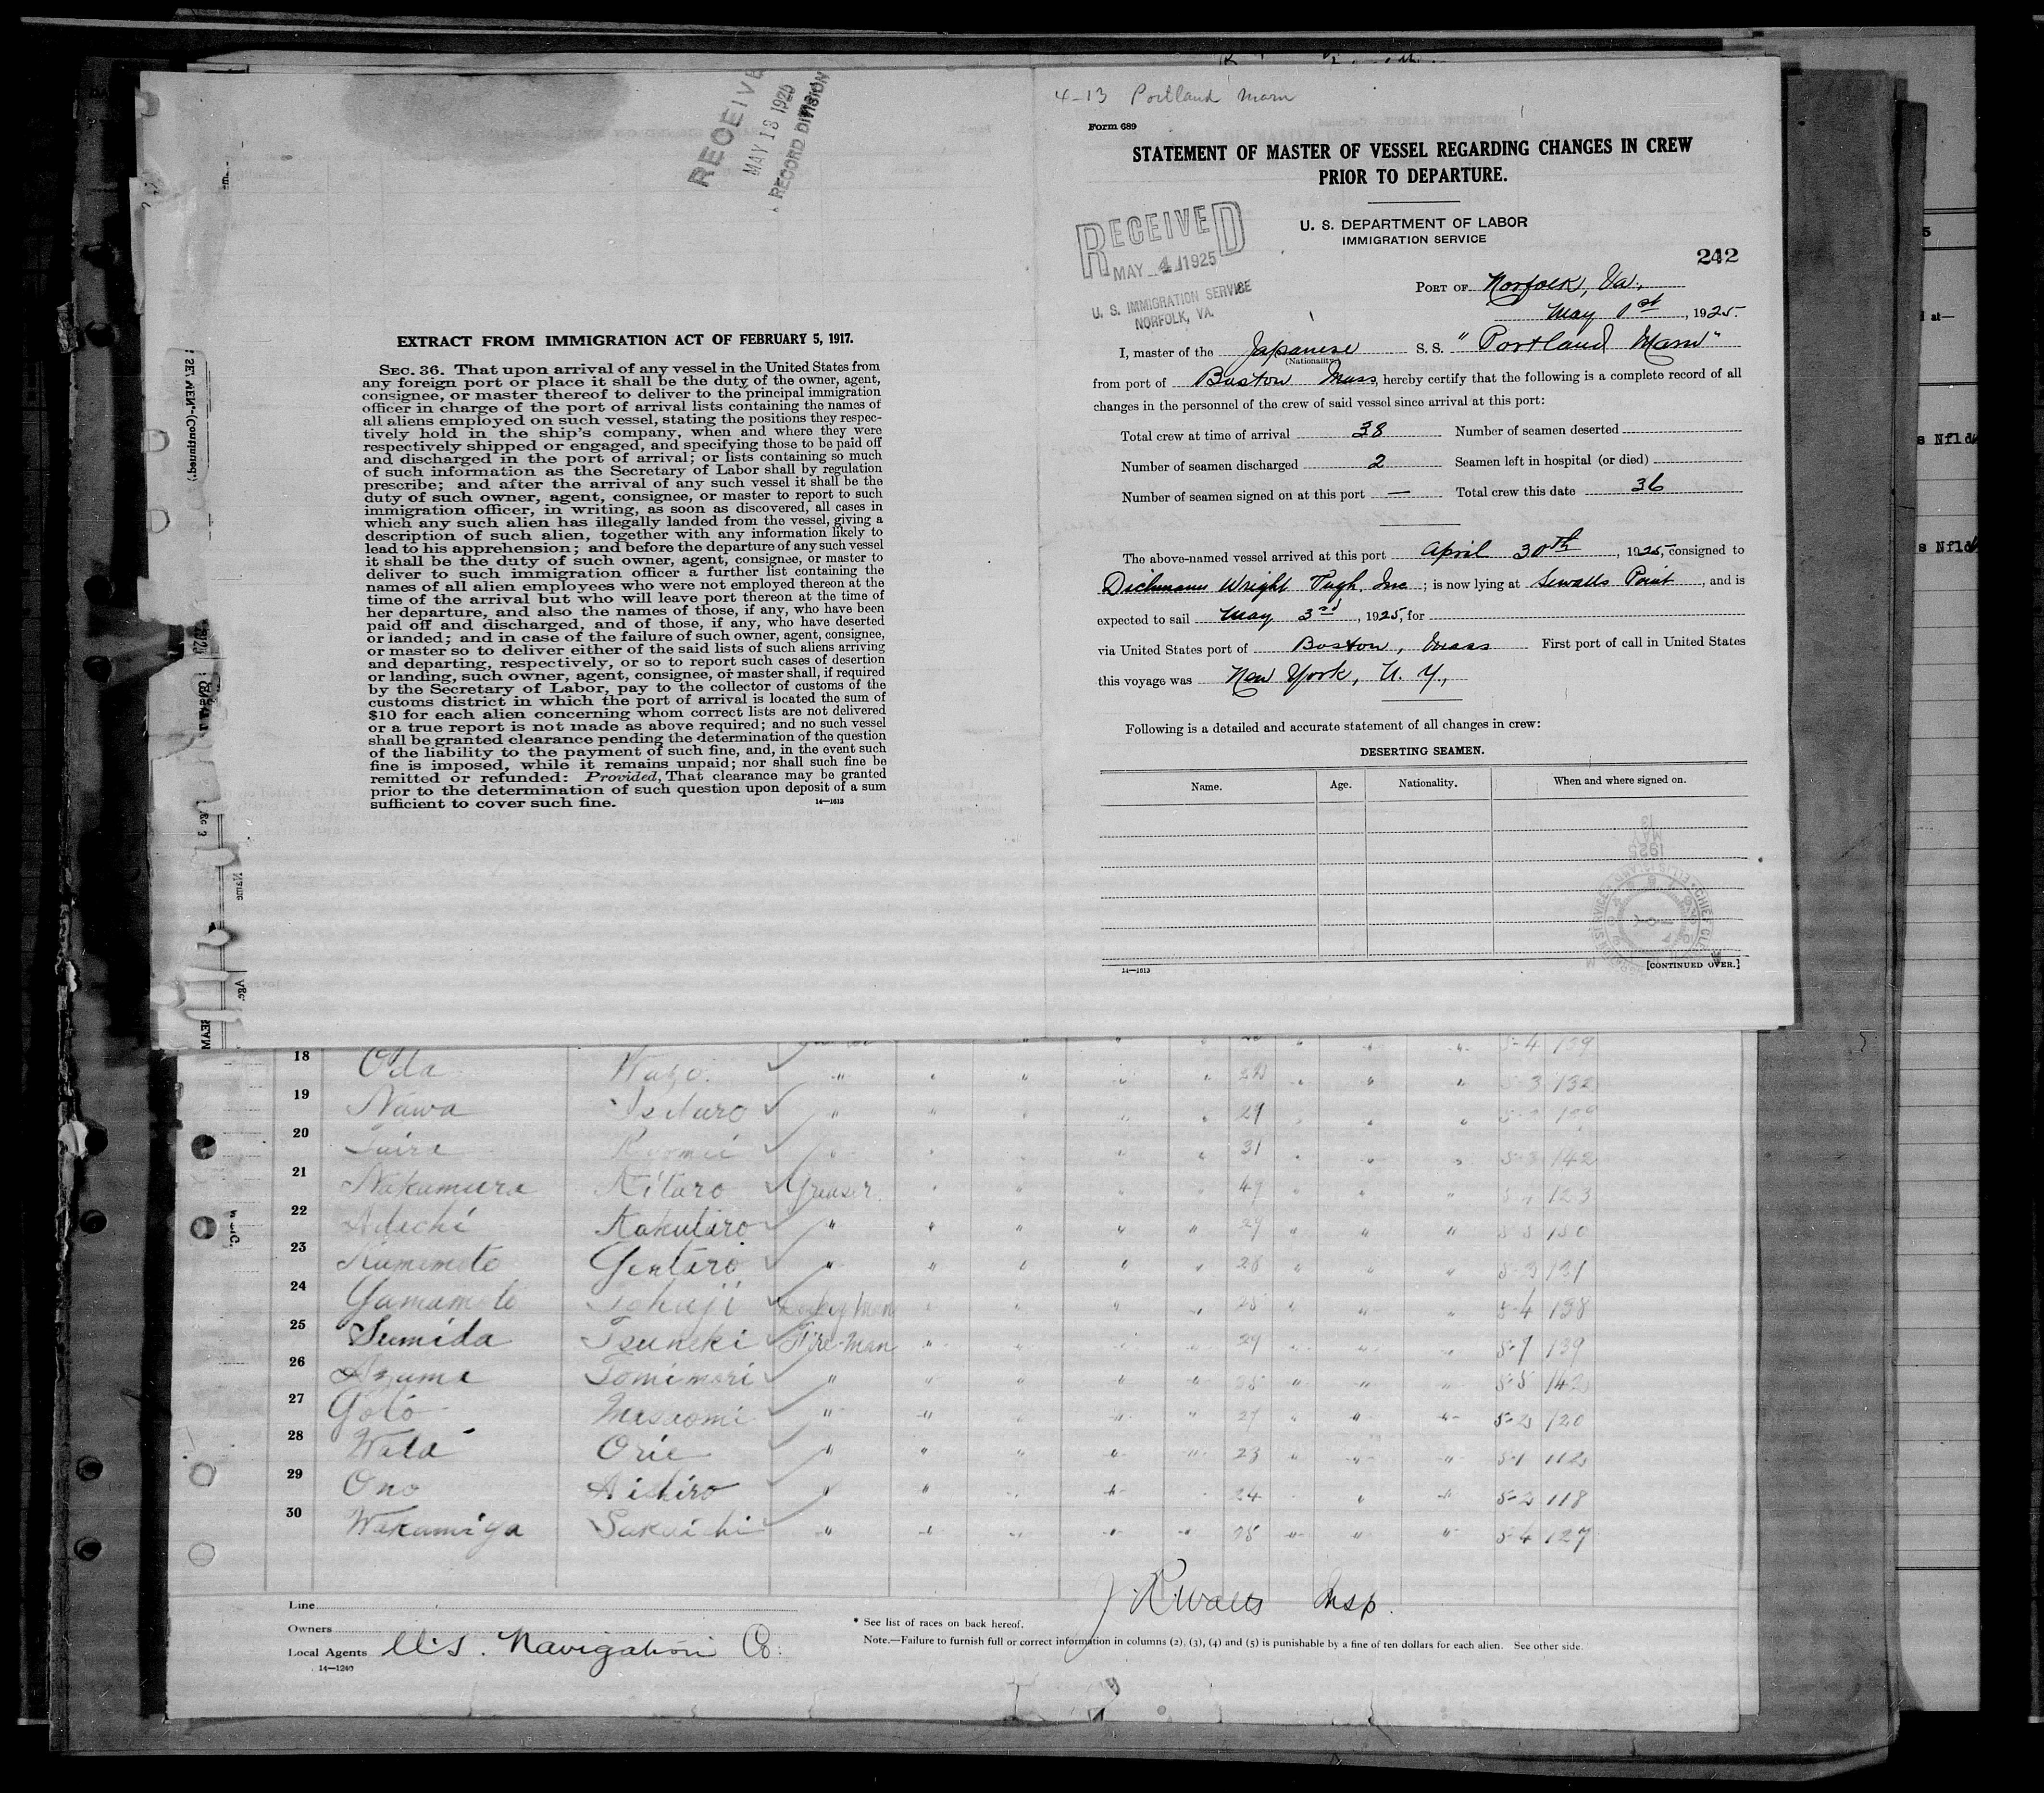 RECEIVE
MAY 18 1925
RECORD DIVISION
EXTRACT FROM IMMIGRATION ACT OF FEBRUARY 5, 1917.
SEC. 36. That upon arrival of any vessel in the United States from
any foreign port or place it shall be the duty of the owner, agent,
consignee, or master thereof to deliver to the principal immigration
officer in charge of the port of arrival lists containing the names of
all aliens employed on such vessel, stating the positions they respec-
tively hold in the ship's company, when and where they were
respectively shipped or engaged, and specifying those to be paid off
and discharged in the port of arrival; or lists containing so much
of such information as the Secretary of Labor shall by regulation
prescribe; and after the arrival of any such vessel it shall be the
duty of such owner, agent, consignee, or master to report to such
immigration officer, in writing, as soon as discovered, all cases in
which any such alien has illegally landed from the vessel, giving a
description of such alien, together with any information likely to
lead to his apprehension; and before the departure of any such vessel
it shall be the duty of such owner, agent, consignee, or master to
deliver to such immigration officer a further list containing the
names of all alien employees who were not employed thereon at the
time of the arrival but who will leave port thereon at the time of
her departure, and also the names of those, if any, who have been
paid off and discharged, and of those, if any, who have deserted
or landed; and in case of the failure of such owner, agent, consignee,
or master so to deliver either of the said lists of such aliens arriving
and departing, respectively, or so to report such cases of desertion
or landing, such owner, agent, consignee, or master shall, if required
by the Secretary of Labor, pay to the collector of customs of the
customs district in which the port of arrival is located the sum of
$10 for each alien concerning whom correct lists are not delivered
or a true report is not made as above required; and no such vessel
shall be granted clearance pending the determination of the question
of the liability to the payment of such fine, and, in the event such
fine is imposed, while it remains unpaid; nor shall such fine be
remitted or refunded: Provided, That clearance may be granted
prior to the determination of such question upon deposit of a sum
sufficient to cover such fine.
14—1613
4-13 Portland Maru
Form 689
STATEMENT OF MASTER OF VESSEL REGARDING CHANGES IN CREW
PRIOR TO DEPARTURE.
U. S. DEPARTMENT OF LABOR
IMMIGRATION SERVICE
RECEIVED
MAY 4 1925
U. S. IMMIGRATION SERVICE
NORFOLK, VA.
242
PORT OF Norfolk, Va.,
May 1st, 1925.
I, master of the Japanese S. S. "Portland Maru"
(Nationality.)
from port of Boston Mass, hereby certify that the following is a complete record of all
changes in the personnel of the crew of said vessel since arrival at this port:
Total crew at time of arrival 38 Number of seamen deserted
Number of seamen discharged 2 Seamen left in hospital (or died)
Number of seamen signed on at this port — Total crew this date 36
The above-named vessel arrived at this port April 30th, 1925, consigned to
Dichmann Wright Pugh, Inc; is now lying at Sewalls Point, and is
expected to sail May 3rd, 1925, for
via United States port of Boston, Mass First port of call in United States
this voyage was New York, N. Y,
Following is a detailed and accurate statement of all changes in crew:
DESERTING SEAMEN.
Name. Age. Nationality. When and where signed on.
14—1613
[CONTINUED OVER.]
18 Oda Wazo. " 139
19 Nawa " 29
20 Taira " 31 5-3 142
21 Nakamura Kitaro Greaser. 49 123
22 Adachi Kakutaro " 29 150
23 Kumamoto Gentaro " 28 121
24 Yamamoto Tokuji 25 5-4 138
25 Sumida Tsuneki Fire-man 29 139
26 Azuma Tomimori " 25 5-5 142
27 Goto Masaomi " 27 5-2 120
28 Wada Orie " 23 5-1 112
29 Ono Aishiro " 24 5-2 118
30 Wakamiya Sakuichi " 25 5-4 127
Line
Owners
Local Agents U.S. Navigation Co.
14—1240
J. R. Walls Insp.
* See list of races on back hereof.
Note.—Failure to furnish full or correct information in columns (2), (3), (4) and (5) is punishable by a fine of ten dollars for each alien. See other side.
s Nfld
s Nfld